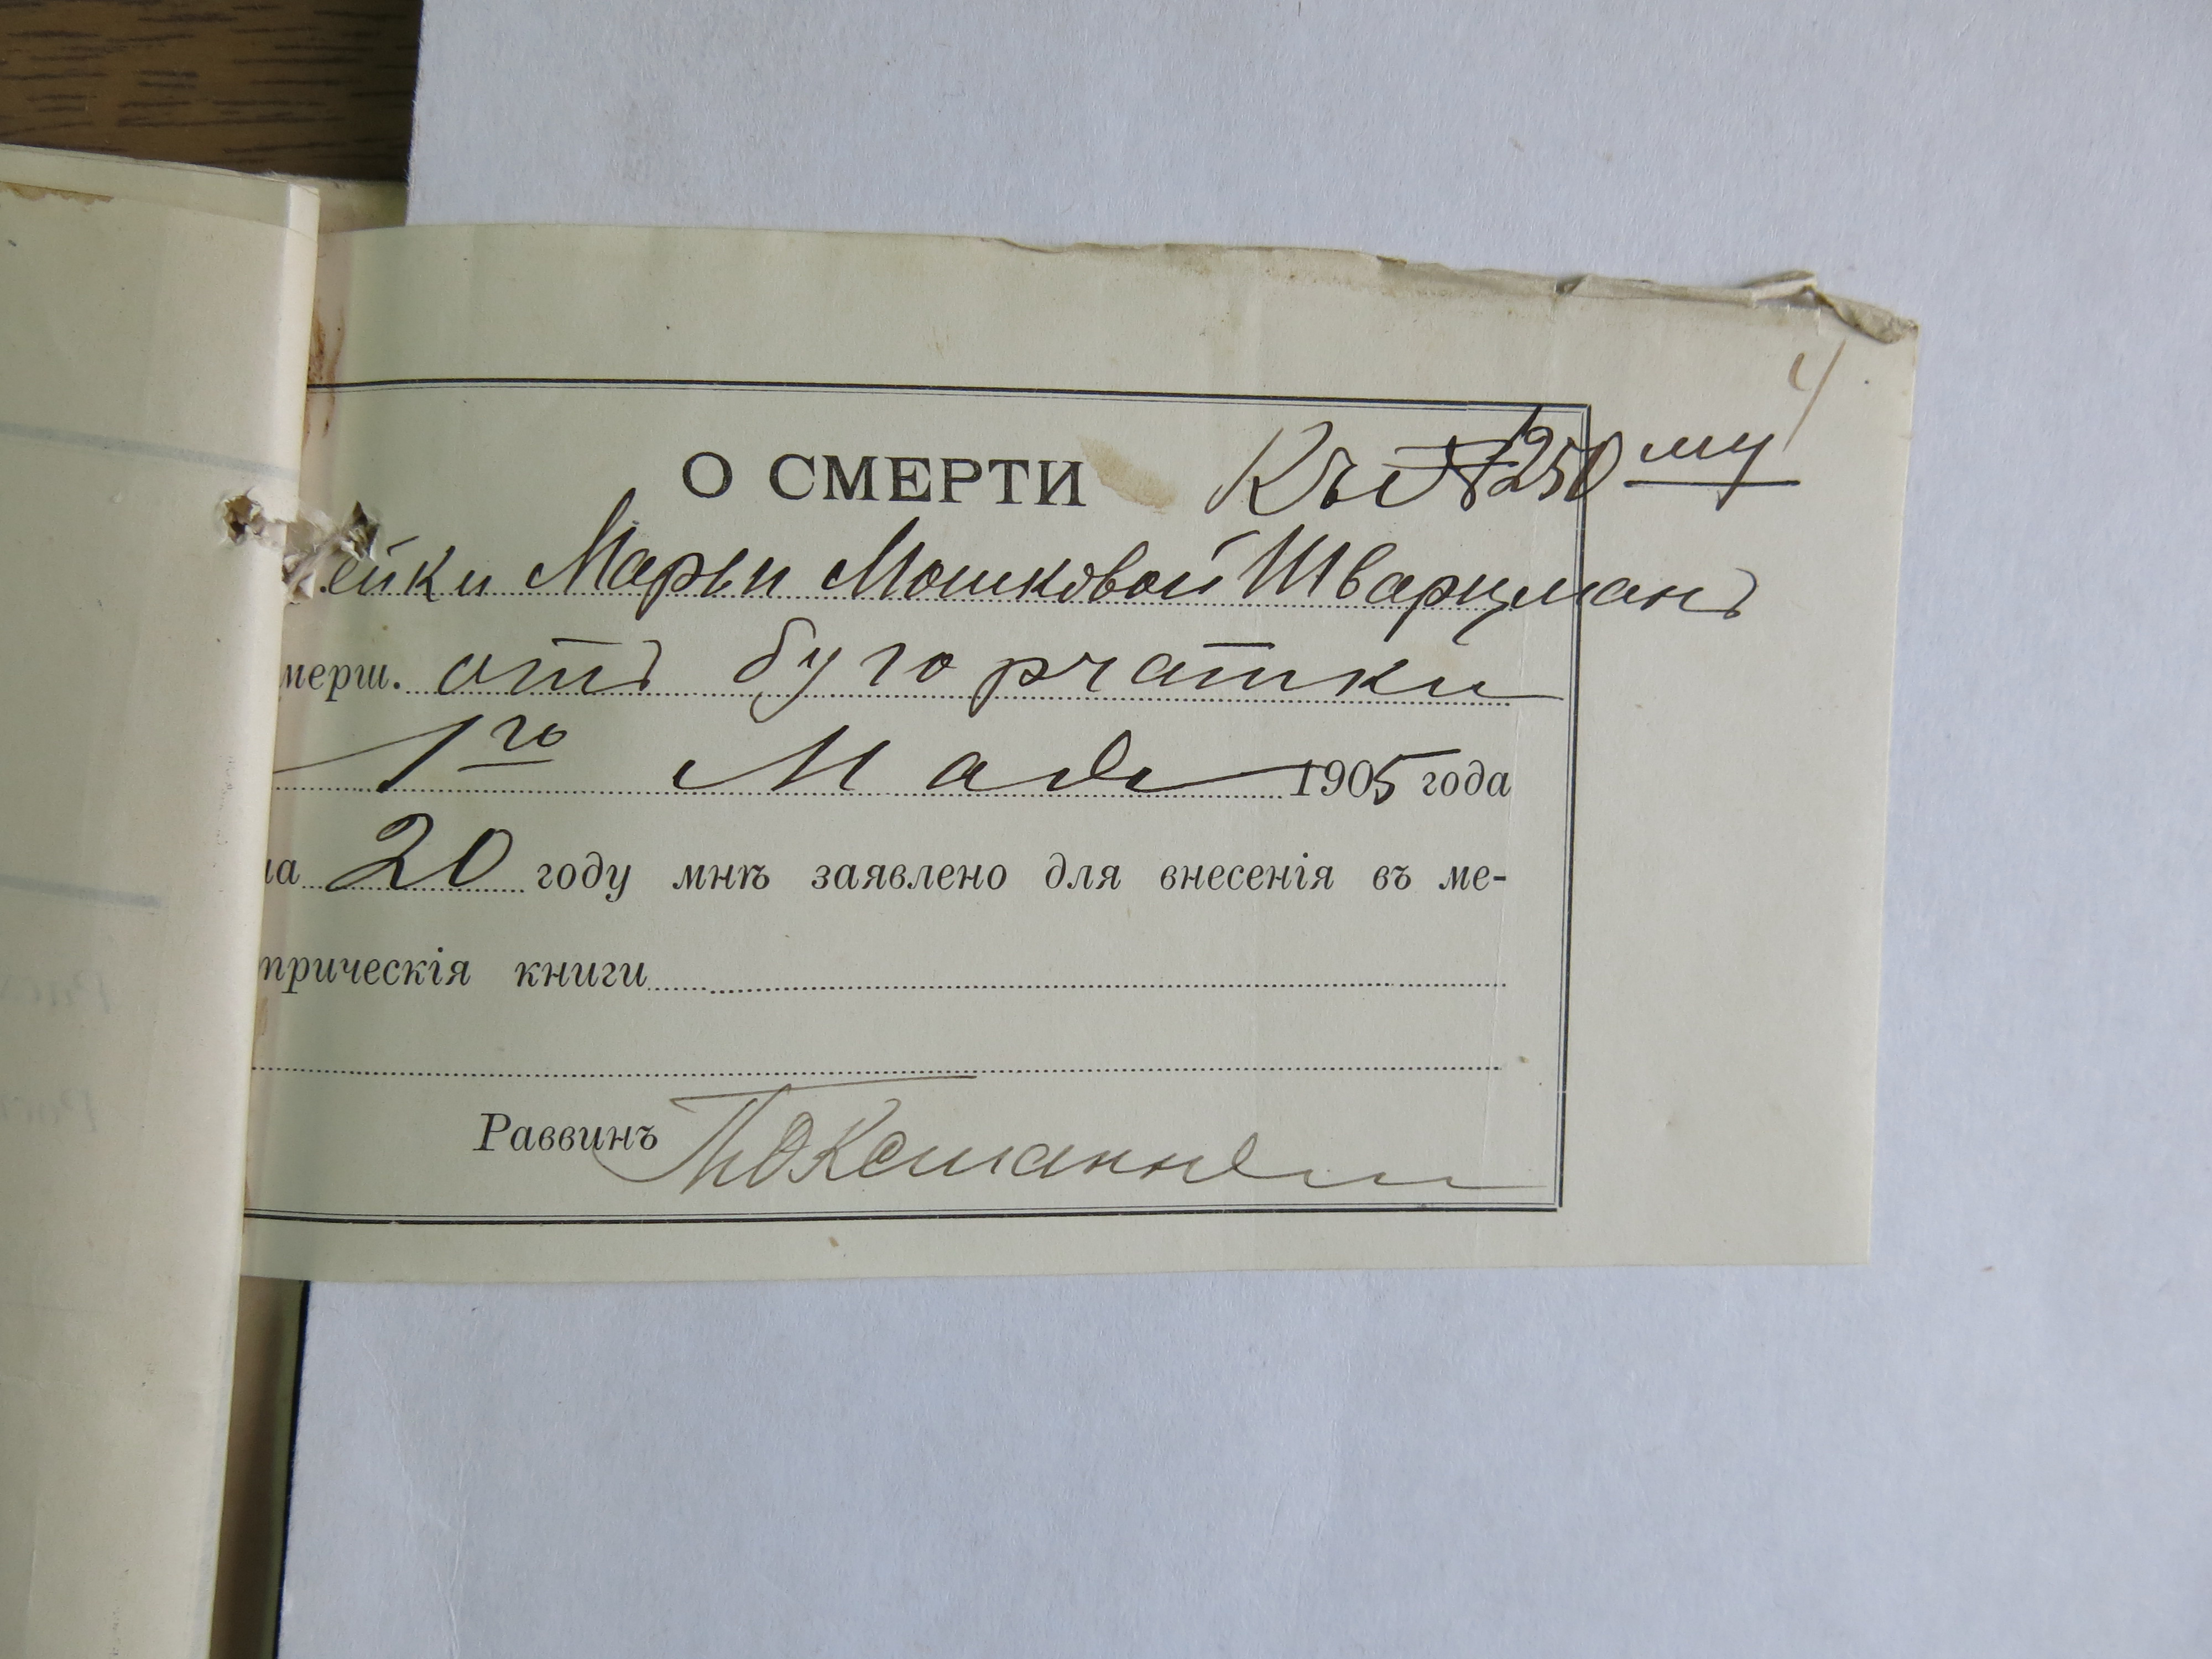 4
О СМЕРТИ Къ № 250му
ейки Марьи Мошковой Шварцманъ
мерш. отъ бугорчатки
1го Мая 1905 года
на 20 году мнѣ заявлено для внесенія въ ме-
трическія книги
Раввинъ